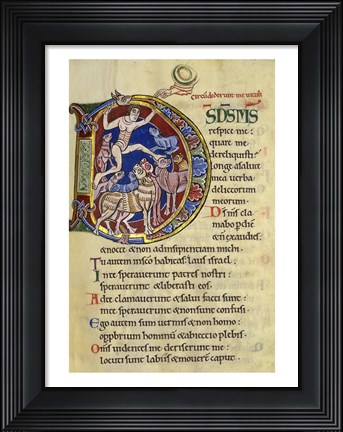 Circūdederunt me uituli
SDSMS
respice me:
quare me
dereliquisti:
longe asalute
mea uerba
delictorum
meorum.
Ds ms cla
mabo p diē
& ñ exaudies:
& nocte & non adinsipientiam michi.
Tu autem insc̄o habitas laus israel.
In te sperauerunt patres nostri:
sperauerunt & liberasti eos.
Ad te clamauerunt & salui facti sunt:
in te sperauerunt & non sunt confusi.
Ego autem sum uermis & non homo:
opp̄brium hominū & abiectio plebis.
Om̄s uidentes me deriserunt me:
locuti sunt labiis & mouerunt caput.